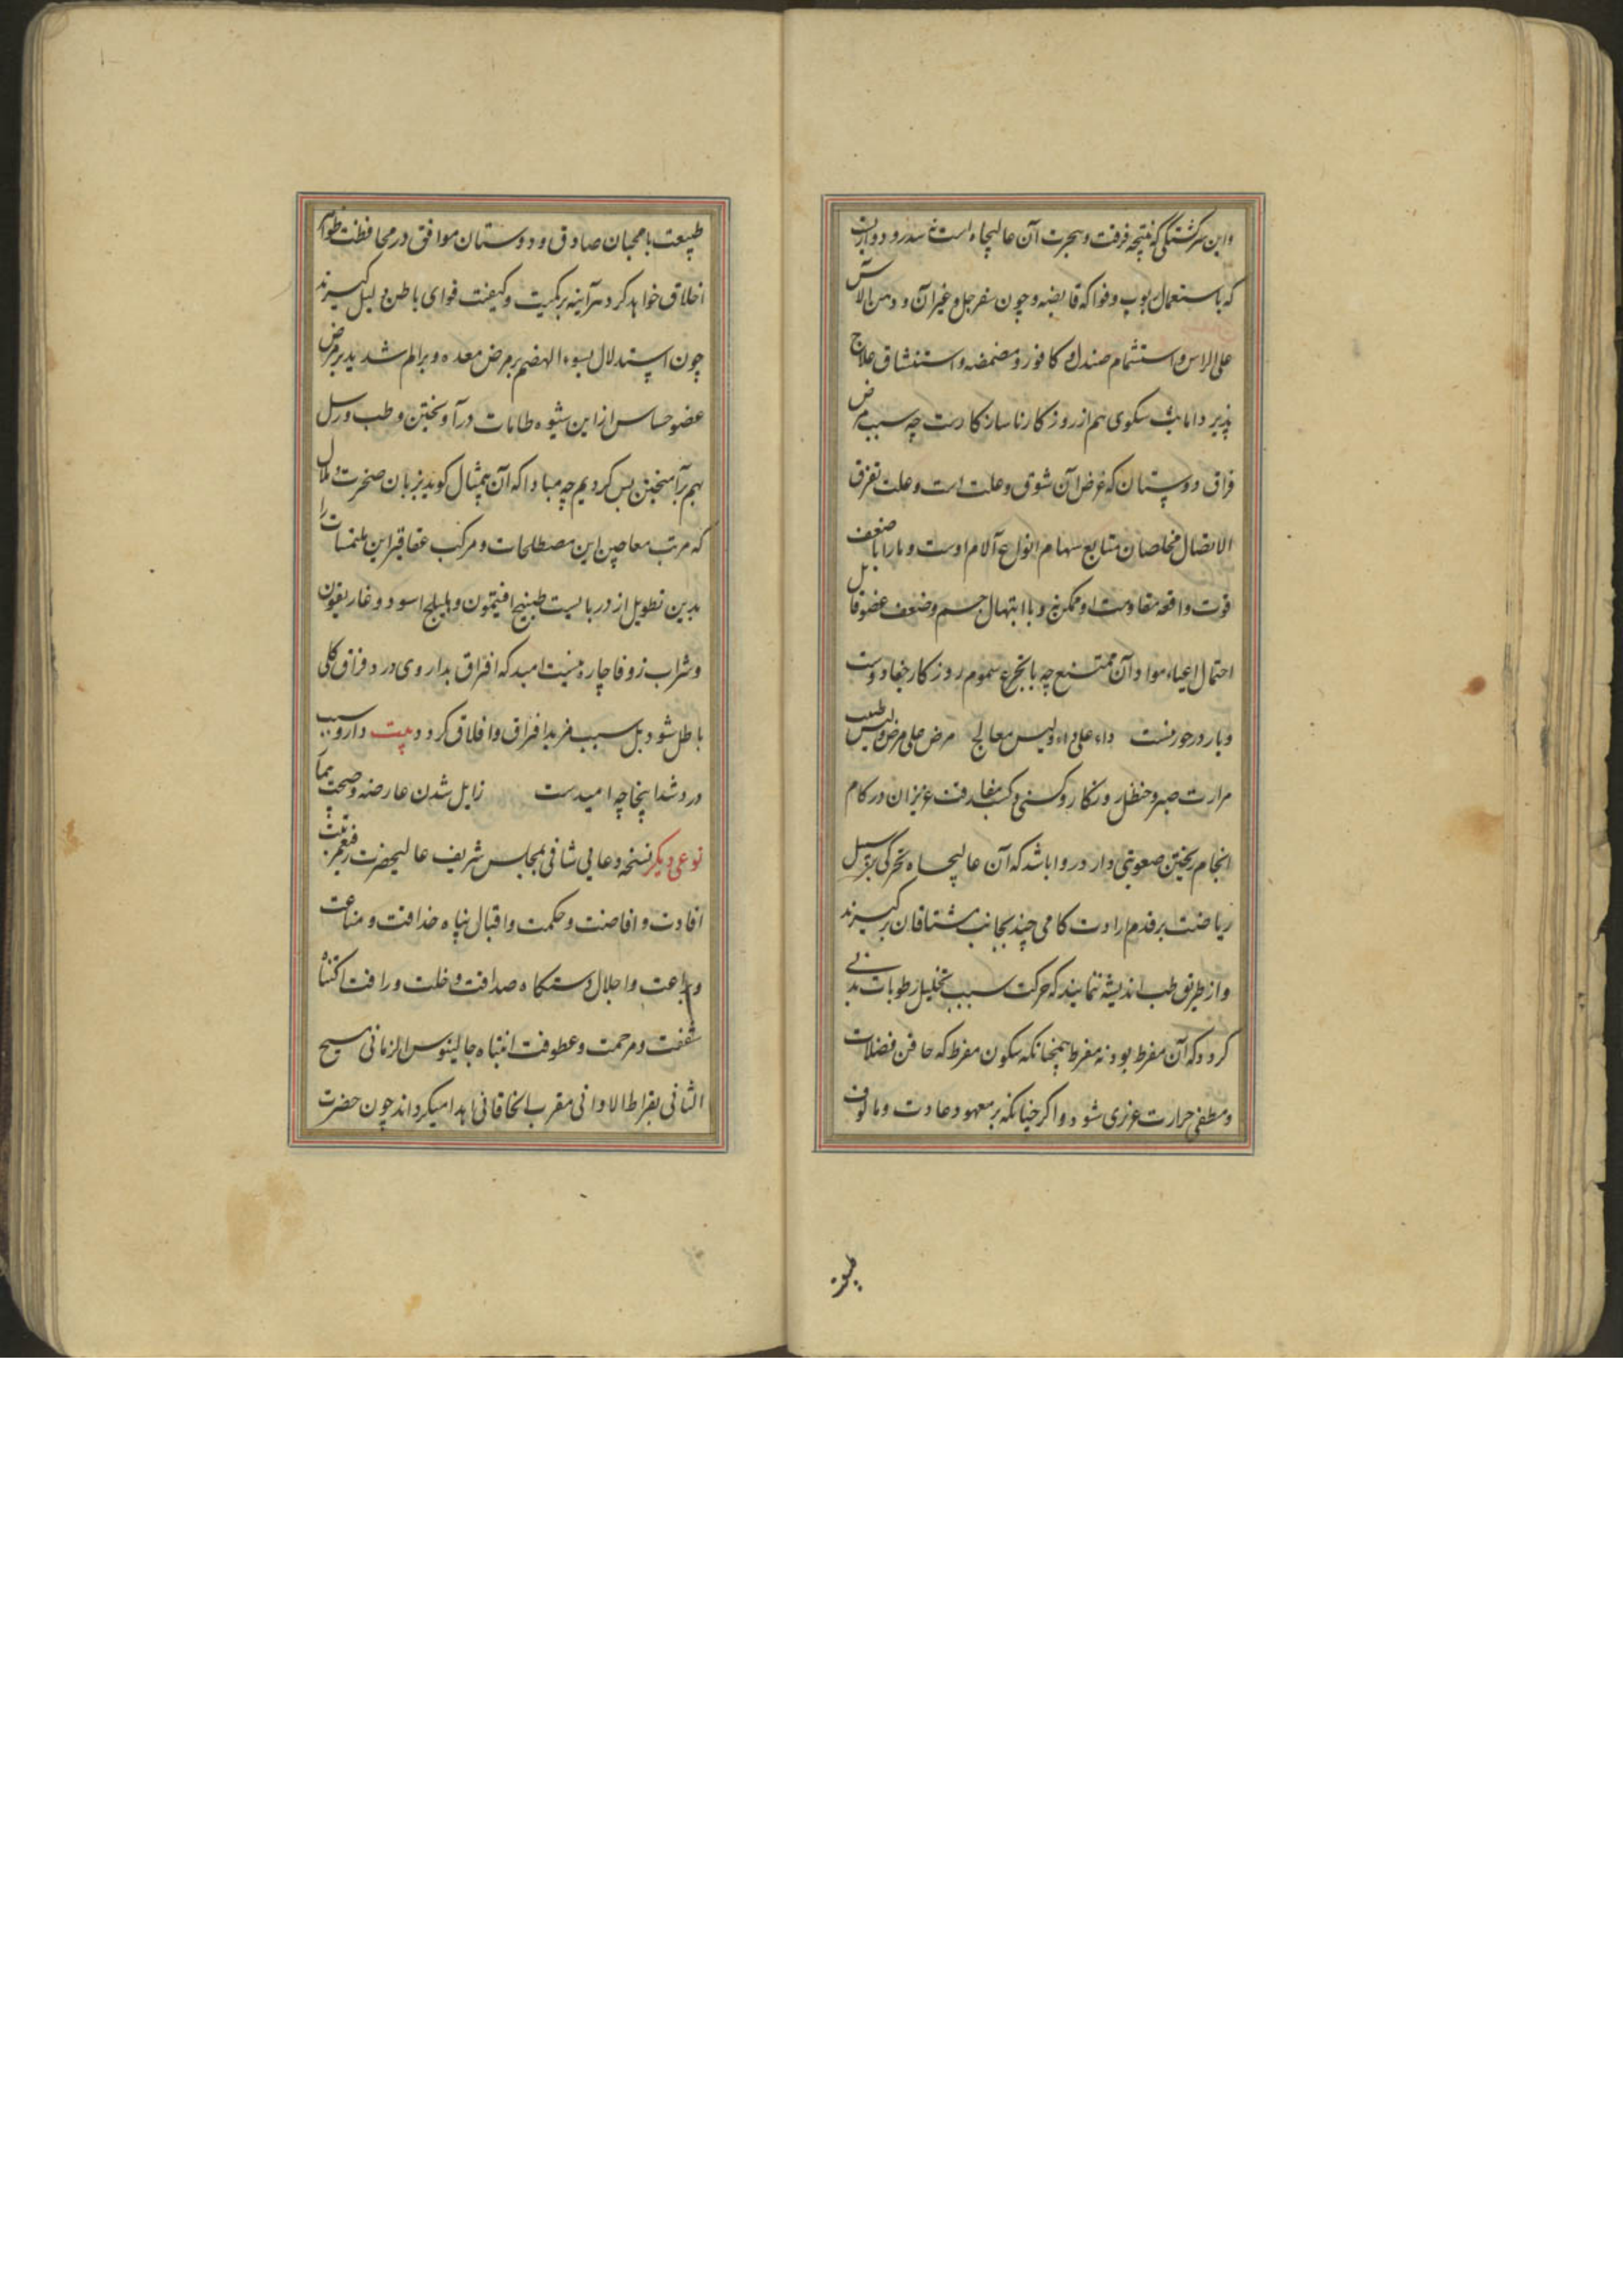 واین سرکشتکی که نتیجه فرقت وهجرت آن عالیجاه است نه سدر و دوار
که باستعمال ربوب وفواکه قابضه و چون سفرجل وغیر آن و دهن الآس
علی الراس واستشمام صندل و کافور ومضمضه واستنشاق علاج
پذیر دامابث شکوی هم از روزکار ناسازکارست چه سبب مرض
فراق دوستان که غرض آن شوق وعلت است وعلت تفرق
الاتصال مخلصان متتابع سهام انواع آلام اوست ومارا با ضعف
قوت واقعه مقاومت او ممکن نه وبا ابتهال جسم وضعف عضو قابل
احتمال اعباء مواد آن ممتنع چه باتجرع سموم روزکار جفا دوست
وبار درخورنست داء علی داء ولیس معالج مرض علی مرض ولیس طبیب
مرارت صبر وحنظل ورنکار وکسنی وکسب مفارقت عزیزان در کام
انجام ریختن صعوبتی دارد روا باشد که آن عالیجاه تحرکی بر سبیل
ریاضت بر قدم ارادت کامی چند بجانب مشتاقان برکیرند
واز طریق طب اندیشه نمایند که حرکت سبب تحلیل رطوبات بدنی
کردد که آن مفرط بود نه مفرط همچنانکه سکون مفرط که حاقن فضلات
ومطفی حرارت غریزی شود واکر چنانکه بر معهود عادت ومالوف
طبیعت
طبیعت با محبان صادق ودوستان موافق در محافظت ظواهر
اخلاق خواهد کرد هرآینه بر کمیت وکیفیت قوای باطن دلیل کیرند
چون استدلال بسوء الهضم بر مرض معده وبر الم شدید بر مرض
عضو حساس از این شیوه طامات در آویختن وطب ورسل
بهم برآمیختن بس کردیم چه مبادا که آن بی‌مثال کوید بزبان ضجرت وملال
که مرتب معاجین این مصطلحات ومرکب عقاقیر این ملتمسات را
بدین تطویل از دربایست طبیخ افیتمون وهلیلج اسود وغاریقون
وشراب زوفا چاره نیست امید که افراق بداروی درد فراق کلی
باطل شود بل سبب مزید افراق وافلاق کردد بیت دارو سبب
درد شد اینجا چه امیدست زایل شدن عارضه وصحت بیمار
نوعی دیکر نسخه دعایی شافی بمجلس شریف عالیحضرت رفیع مرتبت
افادت وافاضت وحکمت واقبال پناه حذاقت ومناعت
وبراعت واجلال دستکاه صداقت وخلت ورافت اکتناه
شفقت ومرحمت وعطوفت انتباه جالینوس الزمانی مسیح
الثانی بقراط الاوانی مقرب الخاقانی اهدا میکرداند چون حضرت